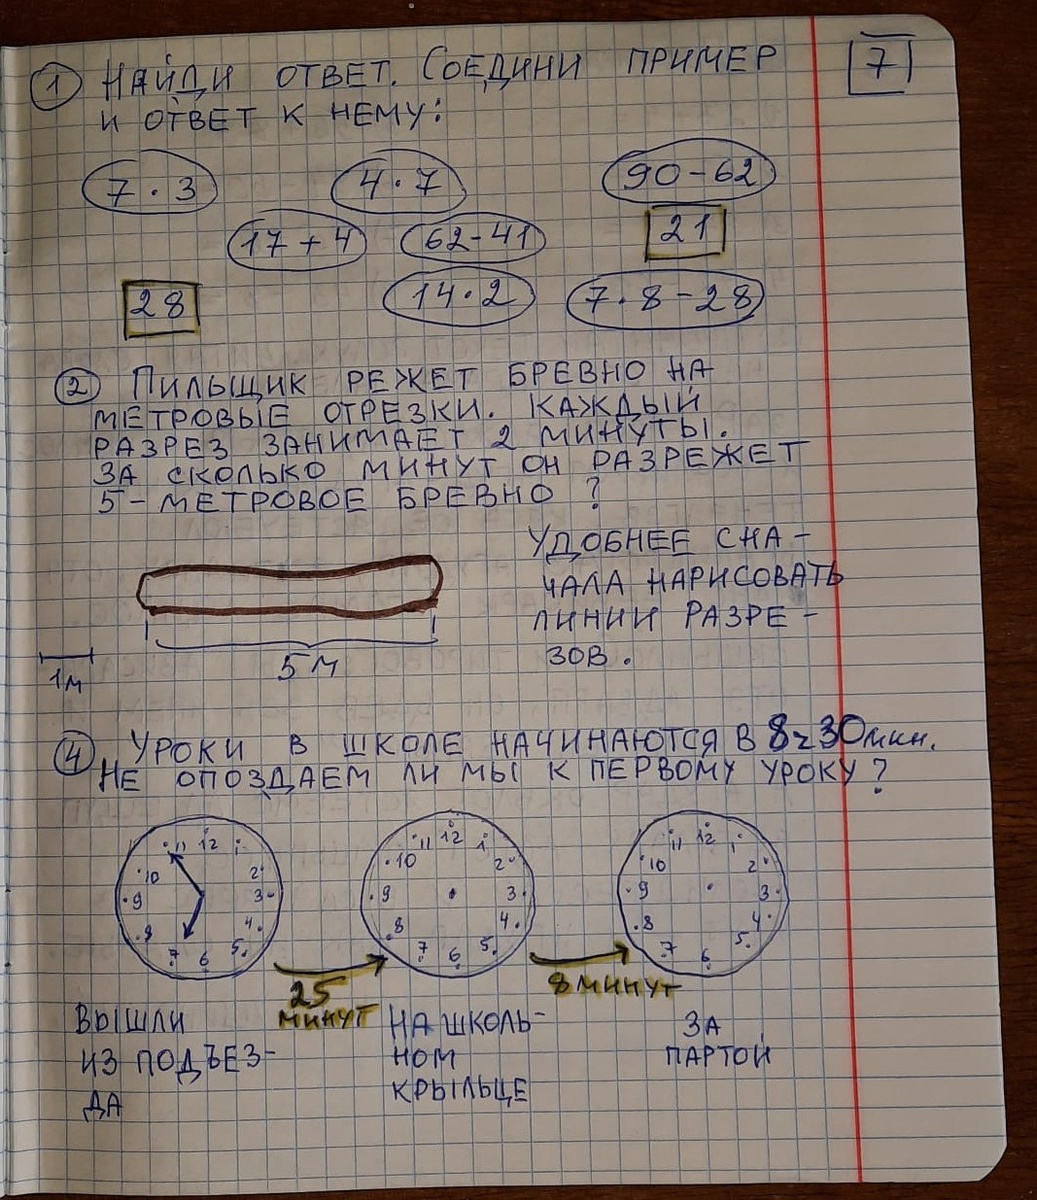 7
1 НАЙДИ ОТВЕТ. СОЕДИНИ ПРИМЕР
И ОТВЕТ К НЕМУ:
7 · 3
4 · 7
90 - 62
17 + 4
62 - 41
21
28
14 · 2
7 · 8 - 28
2 ПИЛЬЩИК РЕЖЕТ БРЕВНО НА
МЕТРОВЫЕ ОТРЕЗКИ. КАЖДЫЙ
РАЗРЕЗ ЗАНИМАЕТ 2 МИНУТЫ.
ЗА СКОЛЬКО МИНУТ ОН РАЗРЕЖЕТ
5-МЕТРОВОЕ БРЕВНО ?
УДОБНЕЕ СНА-
ЧАЛА НАРИСОВАТЬ
ЛИНИИ РАЗРЕ-
ЗОВ.
1м
5 М
4 УРОКИ В ШКОЛЕ НАЧИНАЮТСЯ В 8ч30мин.
НЕ ОПОЗДАЕМ ЛИ МЫ К ПЕРВОМУ УРОКУ?
12 1 2 3 4 5 6 7 8 9 10 11
12 1 2 3 4 5 6 7 8 9 10 11
12 1 2 3 4 5 6 7 8 9 10 11
25
МИНУТ
8 МИНУТ
ВЫШЛИ
ИЗ ПОДЪЕЗ-
ДА
НА ШКОЛЬ-
НОМ
КРЫЛЬЦЕ
ЗА
ПАРТОЙ